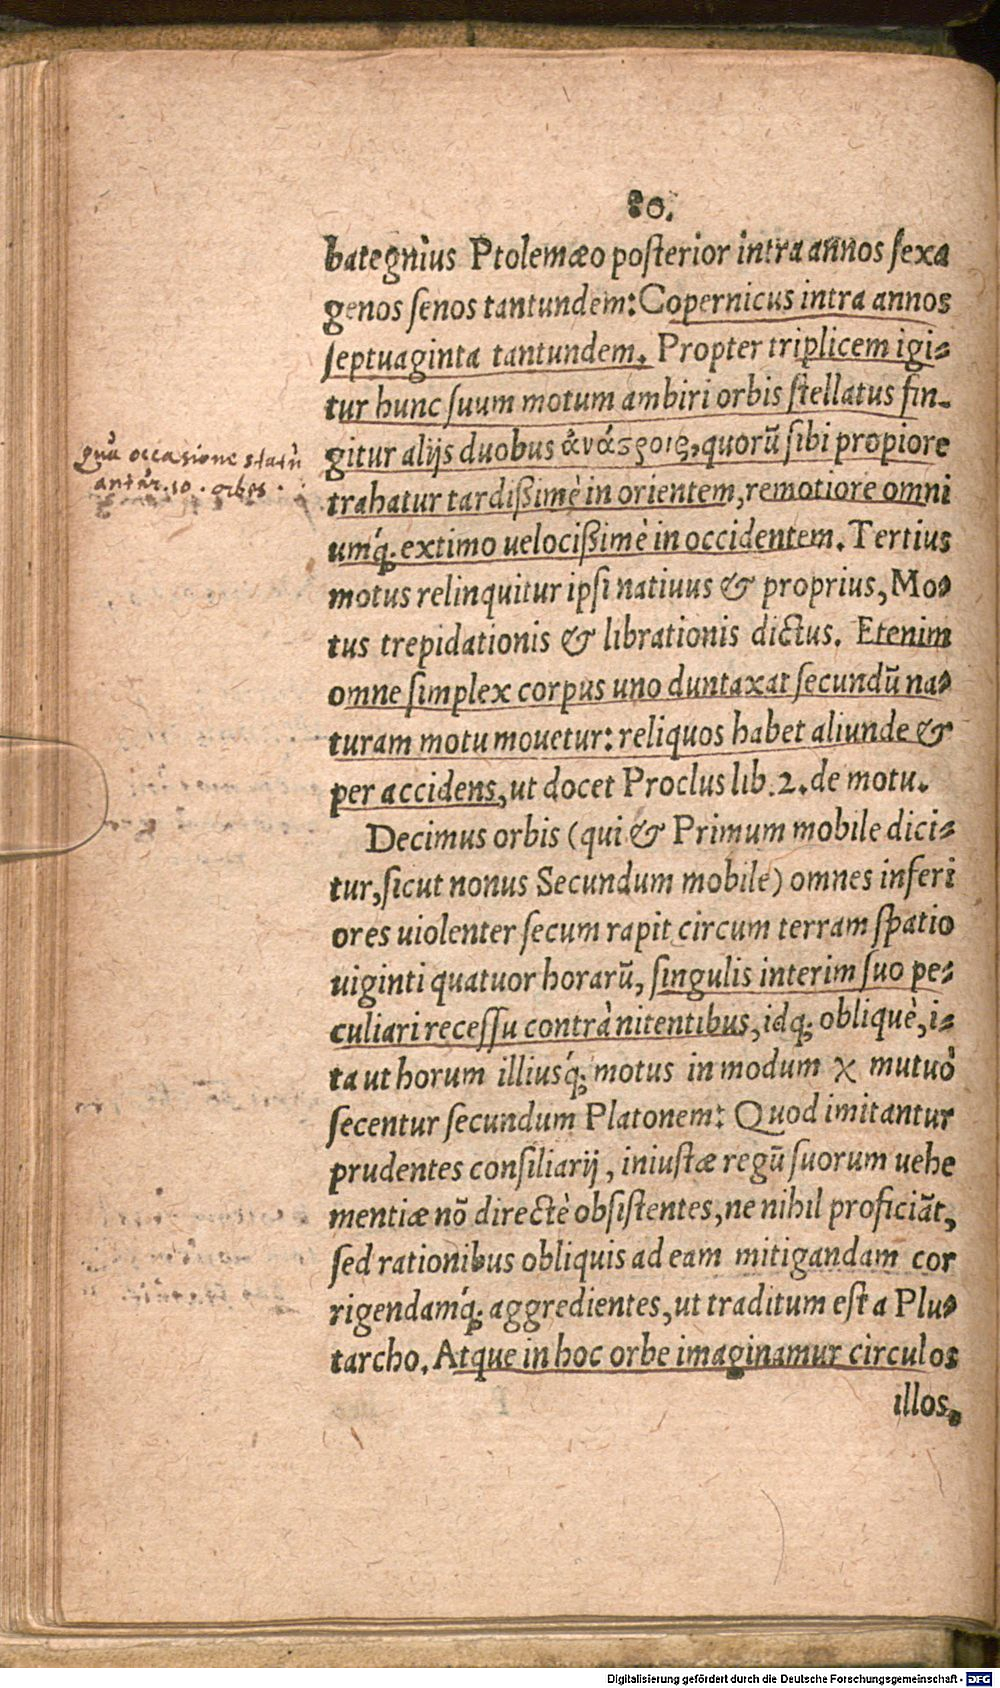 80.
bategnius Ptolemæo posterior intra annos sexa
genos senos tantundem: Copernicus intra annos
septuaginta tantundem. Propter triplicem igi-
tur hunc suum motum ambiri orbis stellatus fin-
gitur alijs duobus ἀνάςροις, quorū sibi propiore
trahatur tardißimè in orientem, remotiore omni
umq́; extimo uelocißimè in occidentem. Tertius
motus relinquitur ipsi natiuus & proprius, Mo-
tus trepidationis & librationis dictus. Etenim
omne simplex corpus uno duntaxat secundū na-
turam motu mouetur: reliquos habet aliunde &
per accidens, ut docet Proclus lib. 2. de motu.
Decimus orbis (qui & Primum mobile dici-
tur, sicut nonus Secundum mobile) omnes inferi
ores uiolenter secum rapit circum terram spatio
uiginti quatuor horarū, singulis interim suo pe-
culiari recessu contrà nitentibus, idq; obliquè, i-
ta ut horum illiusq́; motus in modum χ mutuò
secentur secundum Platonem: Quod imitantur
prudentes consiliarij, iniustæ regū suorum uehe
mentiæ nō directè obsistentes, ne nihil proficiāt,
sed rationibus obliquis ad eam mitigandam cor
rigendamq́; aggredientes, ut traditum est a Plu-
tarcho. Atque in hoc orbe imaginamur circulos
illos.
qua occasione statu
antur .10. orbes.
Digitalisierung gefördert durch die Deutsche Forschungsgemeinschaft - DFG